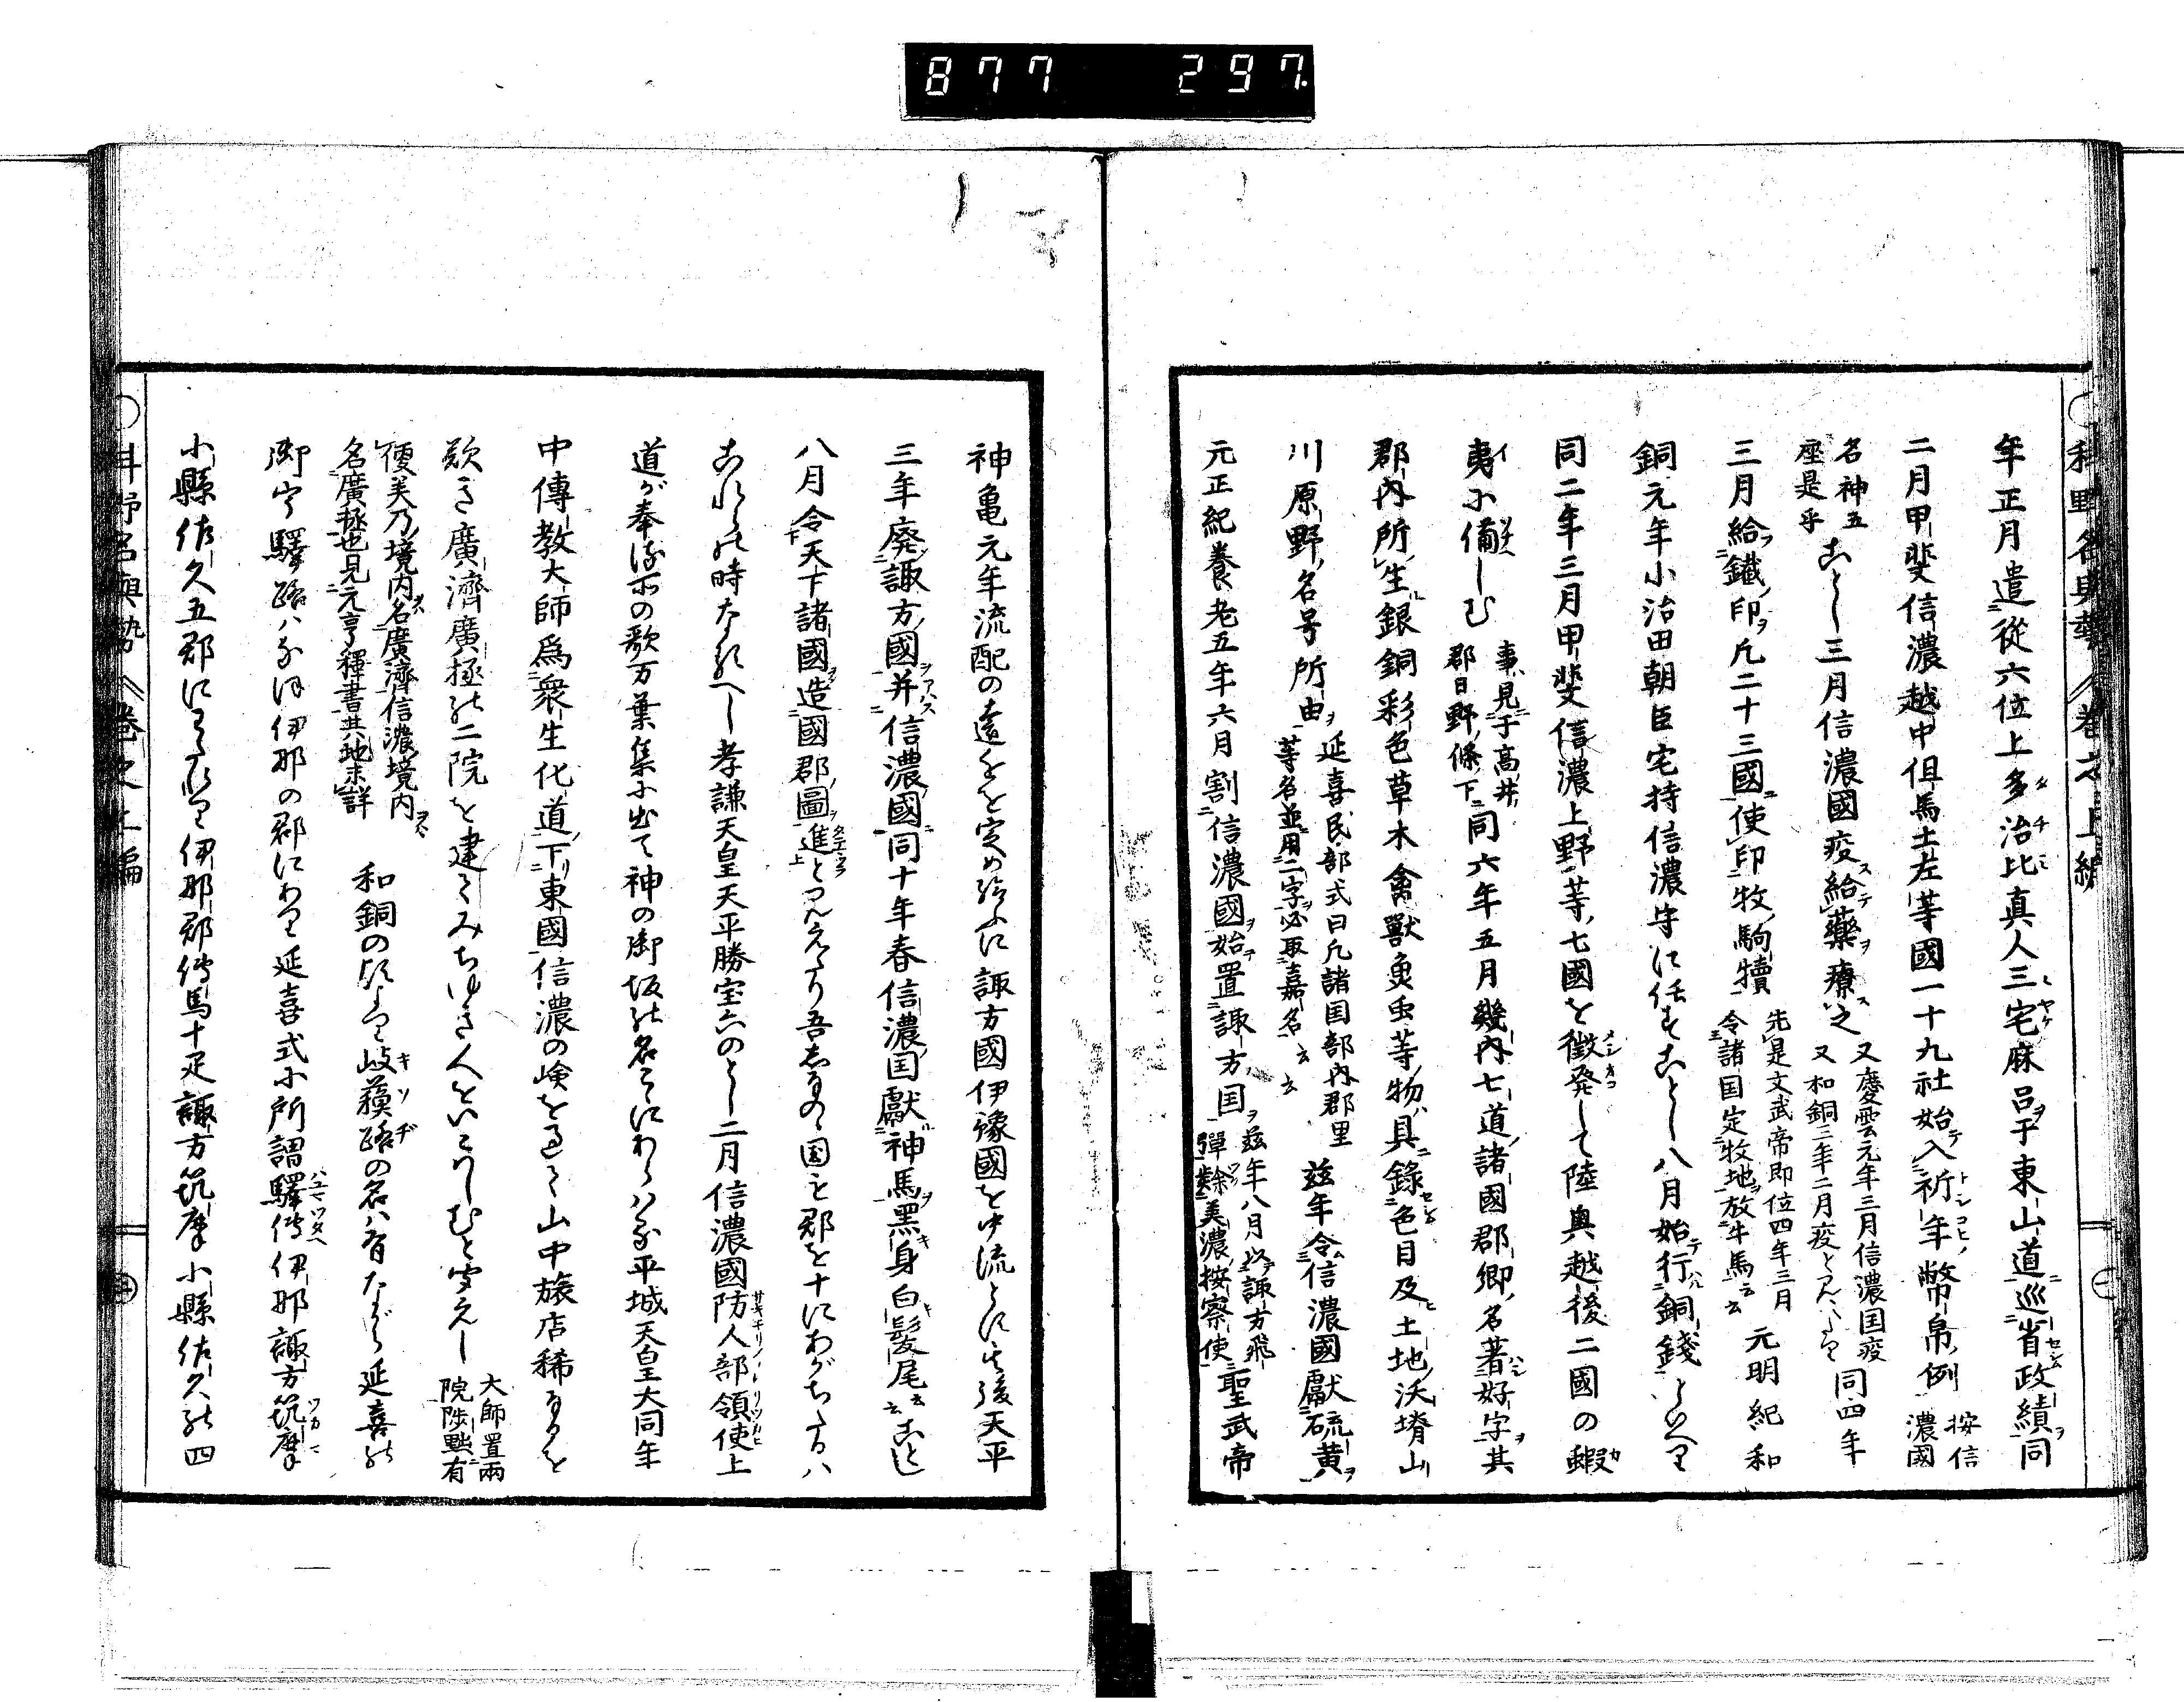 877 297
年正月遣従六位上多治比真人三宅麻呂于東山道巡省政績同
二月甲斐信濃越中但馬土左等國一十九社始入祈年幣帛例 按信濃國
名神五座是乎 三月信濃國疫給藥療之 又慶雲元年三月信濃国疫又和銅三年二月疫 同四年
三月給鐵印凡二十三國使印牧駒犢 先是文武帝即位四年三月令諸国定牧地放牛馬云云 元明紀和
銅元年小治田朝臣宅持信濃守に任す 八月始行銅錢
同二年三月甲斐信濃上野等七國を徴発して陸奥越後二國の蝦
夷に備しむ 事見于高井郡日野條下 同六年五月畿内七道諸國郡郷名著好字其
郡内所生銀銅彩色草木禽獣魚虫等物具錄色目及土地沃塉山
川原野名号所由 延喜民部式曰凡諸国部内郡里等名並用二字必取嘉名云云 茲年令信濃國獻硫黄
元正紀養老五年六月割信濃國始置諏方国 茲年八月以諏方飛彈隷美濃按察使 聖武帝
神亀元年流配の遠近を定め給ふに諏方國伊豫國を中流とに其後天平
三年廃諏方國并信濃國同十年春信濃国獻神馬黒身白髪尾云云
八月令天下諸國造國郡圖進 吾しなの国を郡を十にわかちたるハ
此時なるへし孝謙天皇天平勝宝六のとし二月信濃國防人部領使上
道か奉る所の歌万葉集に出て神の御坂の名 平城天皇大同年
中傳教大師為衆生化道下東國信濃の嶮を 山中旅店稀なるを
歎き廣濟廣拯の二院を建てみちゆき人を 大師置兩院陟黜有
便美乃境内名廣濟信濃境内名廣拯也見元亨釋書其地未詳 和銅の 岐蘓路の名ハ有なから延喜の
御宇驛路ハなほ伊那の郡にあり延喜式に所謂驛傳伊那諏方筑摩
小縣佐久五郡に 伊那郡傳馬十疋諏方筑摩小縣佐久の四